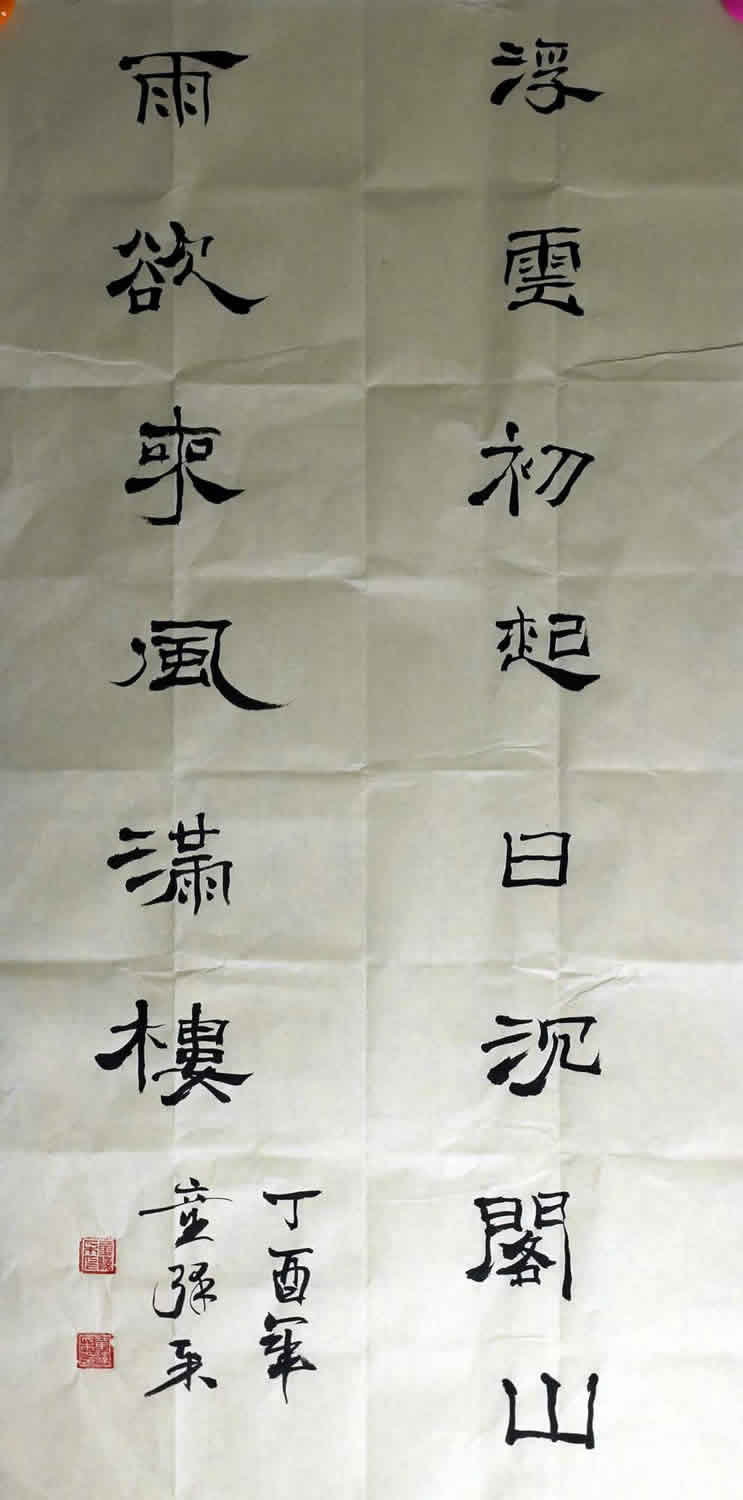 浮雲初起日沉閣山
雨欲來風滿樓
丁酉年